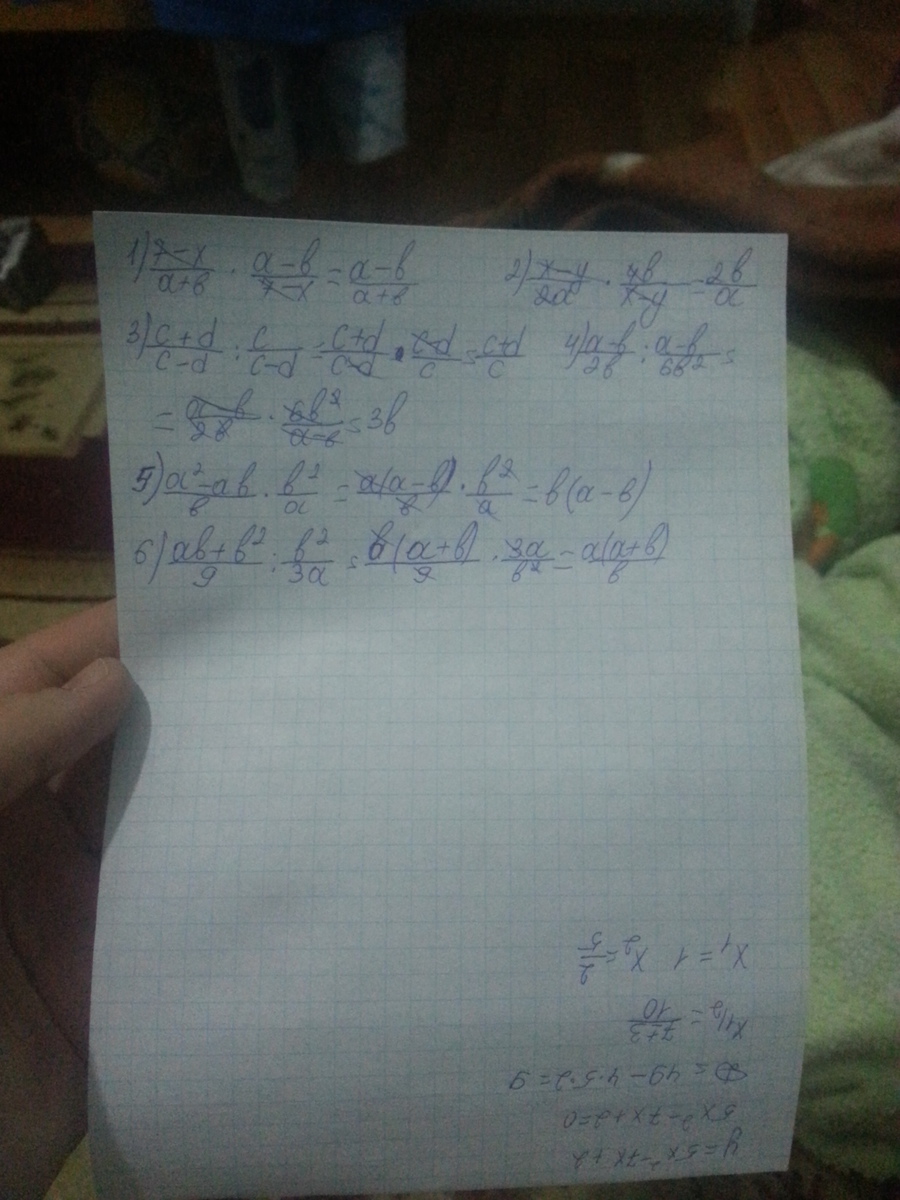 1) (7-x)/(a+b) · (a-b)/(7-x) = (a-b)/(a+b) 2) (x-y)/2a · 4b/(x-y) = 2b/a
3) (c+d)/(c-d) : c/(c-d) = (c+d)/(c-d) · (c-d)/c = (c+d)/c 4) (a-b)/2b : (a-b)/6b² =
= (a-b)/2b · 6b²/(a-b) = 3b
5) (a²-ab)/b · b²/a = a(a-b)/b · b²/a = b(a-b)
6) (ab+b²)/9 : b²/3a = b(a+b)/9 · 3a/b² = a(a+b)/b
y=5x²-7x+2
5x²-7x+2=0
D=49-4·5·2=9
x1/2 = (7±3)/10
x1=1 x2=2/5